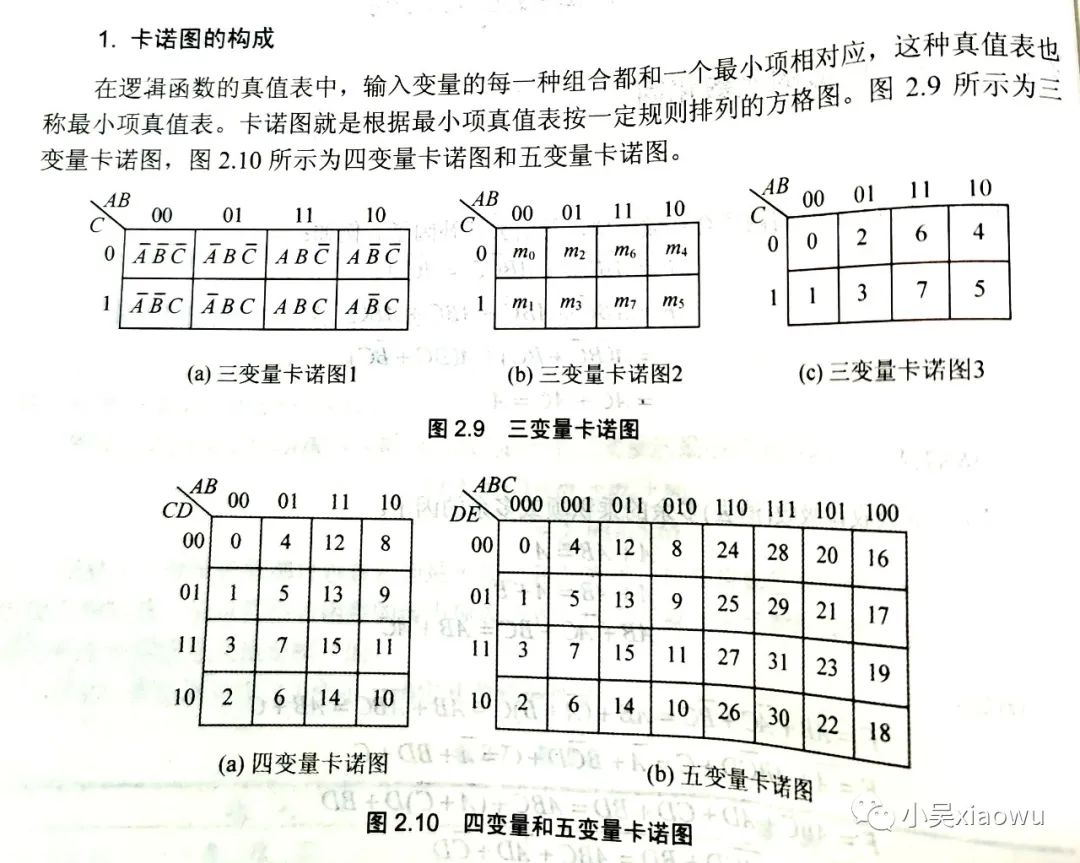 1. 卡诺图的构成
在逻辑函数的真值表中，输入变量的每一种组合都和一个最小项相对应，这种真值表也
称最小项真值表。卡诺图就是根据最小项真值表按一定规则排列的方格图。图 2.9 所示为三
变量卡诺图，图 2.10 所示为四变量卡诺图和五变量卡诺图。
AB
C 00 01 11 10
0 A̅B̅C̅ A̅BC̅ ABC̅ AB̅C̅
1 A̅B̅C A̅BC ABC AB̅C
(a) 三变量卡诺图1
AB
C 00 01 11 10
0 m₀ m₂ m₆ m₄
1 m₁ m₃ m₇ m₅
(b) 三变量卡诺图2
AB
C 00 01 11 10
0 0 2 6 4
1 1 3 7 5
(c) 三变量卡诺图3
图 2.9 三变量卡诺图
AB
CD 00 01 11 10
00 0 4 12 8
01 1 5 13 9
11 3 7 15 11
10 2 6 14 10
(a) 四变量卡诺图
ABC
DE 000 001 011 010 110 111 101 100
00 0 4 12 8 24 28 20 16
01 1 5 13 9 25 29 21 17
11 3 7 15 11 27 31 23 19
10 2 6 14 10 26 30 22 18
(b) 五变量卡诺图
图 2.10 四变量和五变量卡诺图
小吴xiaowu